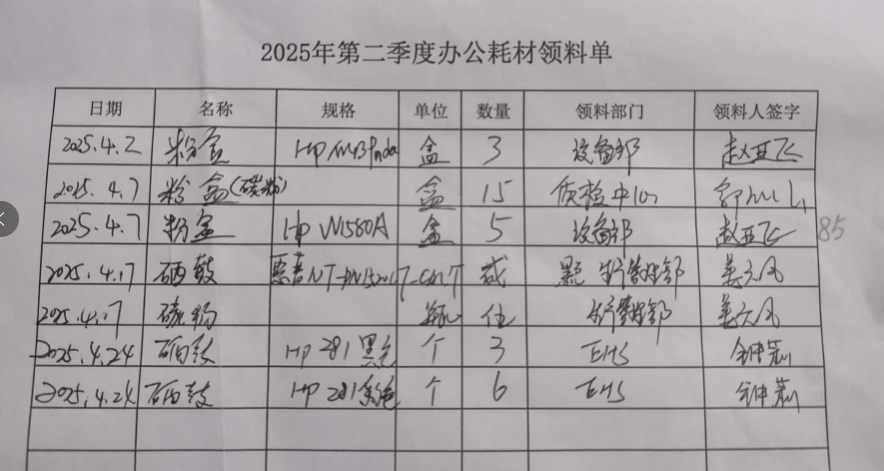 2025年第二季度办公耗材领料单
日期 名称 规格 单位 数量 领料部门 领料人签字
2025.4.2 粉盒 HP 盒 3 设备部 赵亚飞
2025.4.7 粉盒(碳粉) 盒 15 质检中心
2025.4.7 粉盒 HP W1580A 盒 5 设备部 赵亚飞 85
2025.4.17 硒鼓 生产管理部 姜文凤
2025.4.17 碳粉 瓶 生产管理部 姜文凤
2025.4.24 硒鼓 HP 281黑色 个 3 EHS 钟莉
2025.4.24 硒鼓 HP 281 个 6 EHS 钟莉